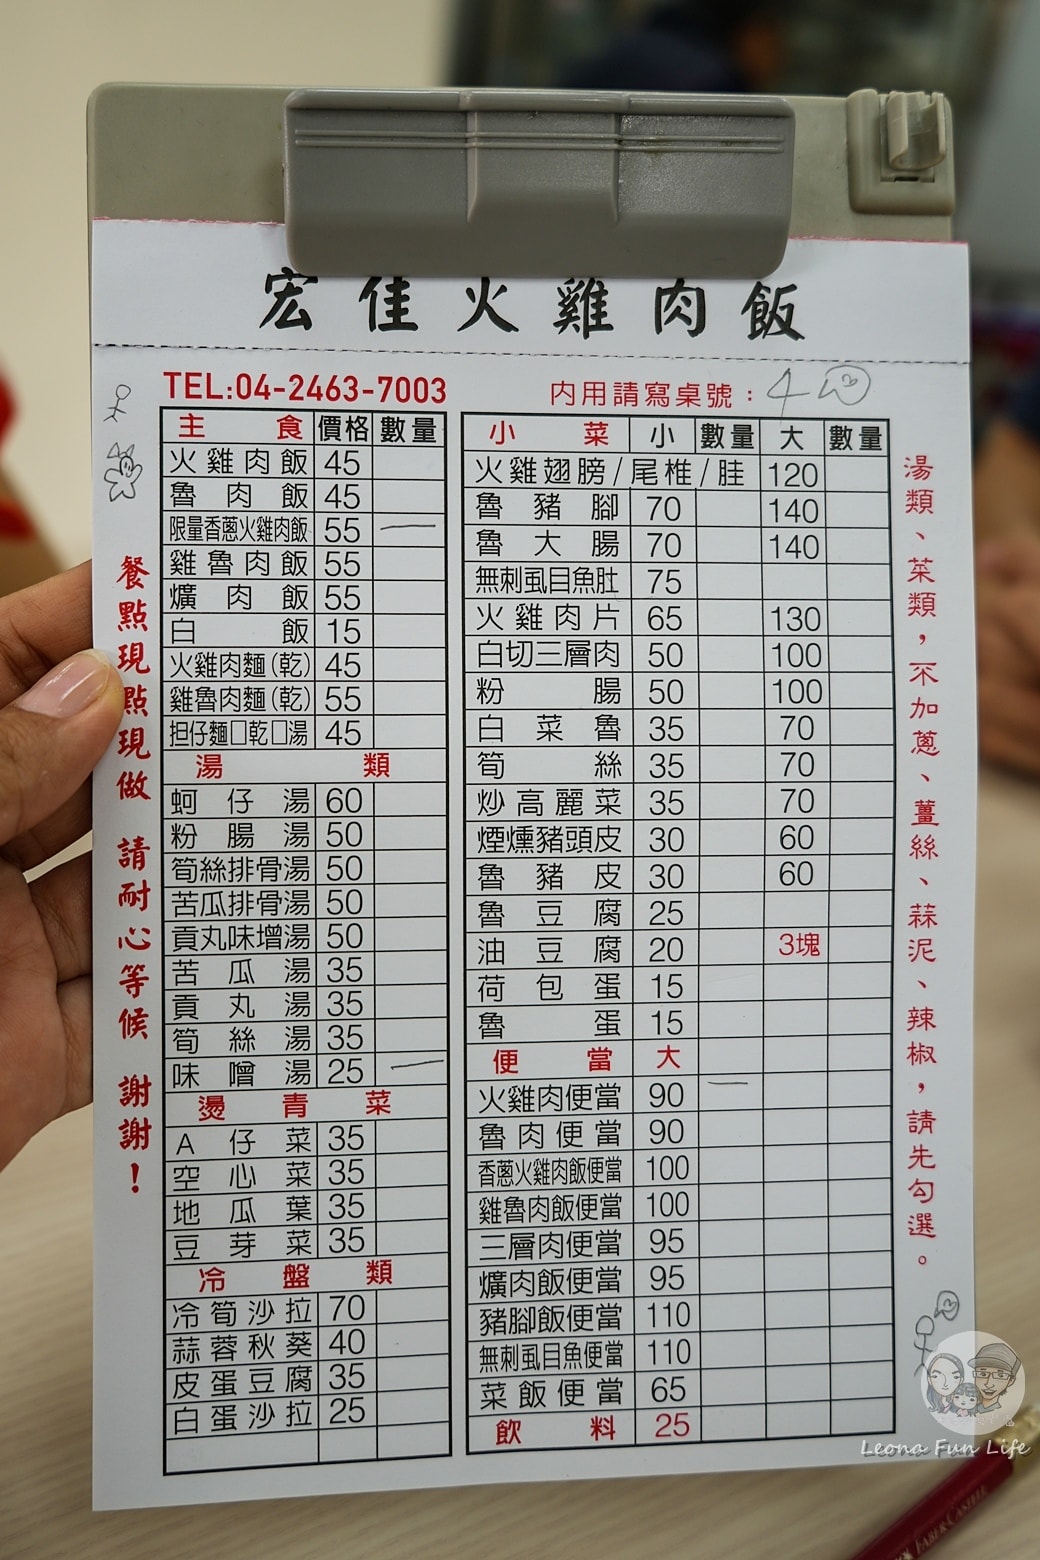 宏佳火雞肉飯
TEL:04-2463-7003
內用請寫桌號：4
餐點現點現做 請耐心等候 謝謝！
主食 價格 數量
火雞肉飯 45
魯肉飯 45
限量香蔥火雞肉飯 55 一
雞魯肉飯 55
爌肉飯 55
白飯 15
火雞肉麵(乾) 45
雞魯肉麵(乾) 55
担仔麵□乾□湯 45
湯類
蚵仔湯 60
粉腸湯 50
筍絲排骨湯 50
苦瓜排骨湯 50
貢丸味增湯 50
苦瓜湯 35
貢丸湯 35
筍絲湯 35
味噌湯 25 一
燙青菜
A仔菜 35
空心菜 35
地瓜葉 35
豆芽菜 35
冷盤類
冷筍沙拉 70
蒜蓉秋葵 40
皮蛋豆腐 35
白蛋沙拉 25
小菜 小 數量 大 數量
火雞翅膀/尾椎/胿 120
魯豬腳 70 140
魯大腸 70 140
無刺虱目魚肚 75
火雞肉片 65 130
白切三層肉 50 100
粉腸 50 100
白菜魯 35 70
筍絲 35 70
炒高麗菜 35 70
煙燻豬頭皮 30 60
魯豬皮 30 60
魯豆腐 25
油豆腐 20 3塊
荷包蛋 15
魯蛋 15
便當 大
火雞肉便當 90 一
魯肉便當 90
香蔥火雞肉飯便當 100
雞魯肉飯便當 100
三層肉便當 95
爌肉飯便當 95
豬腳飯便當 110
無刺虱目魚便當 110
菜飯便當 65
飲料 25
湯類、菜類，不加蔥、薑絲、蒜泥、辣椒，請先勾選。
Leona Fun Life
FABER-CASTELL